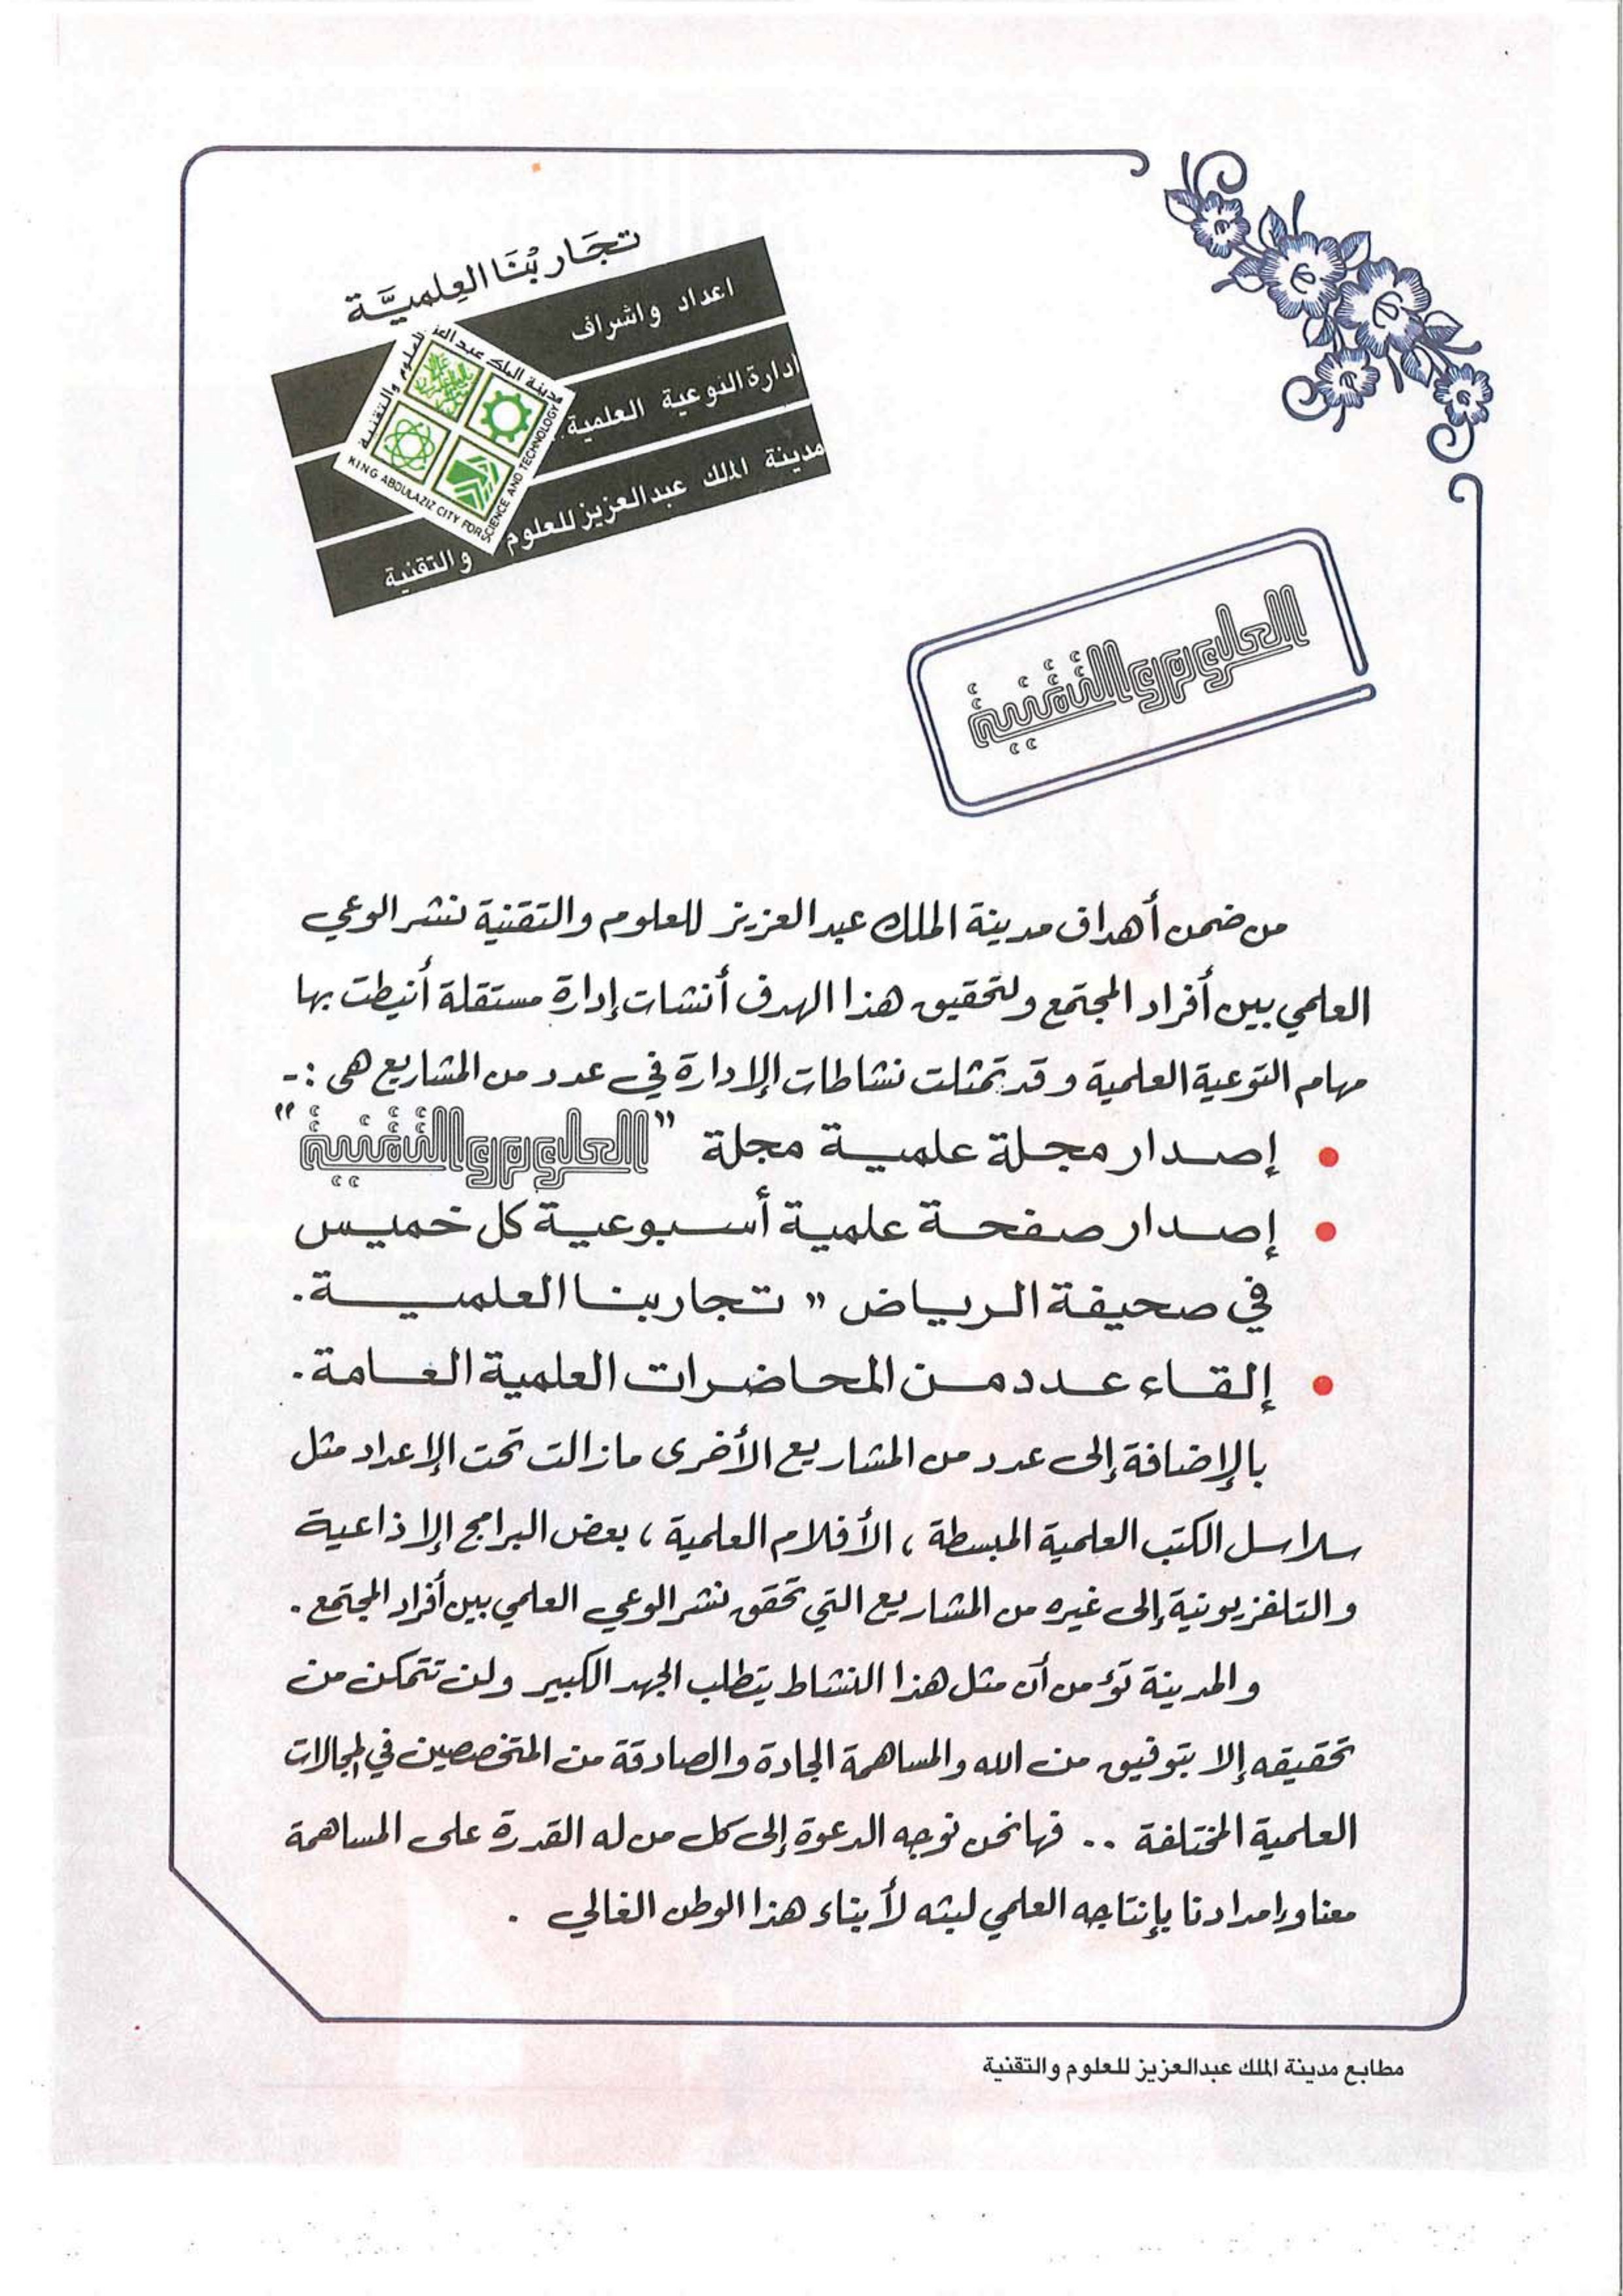 تجَاربُنَا العِلميَّة
اعداد واشراف
إدارة التوعية العلمية
مدينة الملك عبدالعزيز للعلوم والتقنية
مدينة الملك عبد العزيز للعلوم والتقنية
KING ABDULAZIZ CITY FOR SCIENCE AND TECHNOLOGY
العلوم والتقنية
من ضمن أهداف مدينة الملك عبد العزيز للعلوم والتقنية نشر الوعي
العلمي بين أفراد المجتمع ولتحقيق هذا الهدف أنشات إدارة مستقلة أنيطت بها
مهام التوعية العلمية وقد تمثلت نشاطات الإدارة في عدد من المشاريع هى :-
● إصدار مجلة علمية مجلة "العلوم والتقنية"
● إصدار صفحة علمية أسبوعية كل خميس
في صحيفة الرياض " تجاربنا العلمية.
● إلقاء عدد من المحاضرات العلمية العامة.
بالإضافة إلى عدد من المشاريع الأخرى مازالت تحت الإعداد مثل
سلاسل الكتب العلمية المبسطة ، الأفلام العلمية ، بعض البرامج الإذاعية
والتلفزيونية إلى غيره من المشاريع التي تحقق نشر الوعي العلمي بين أفراد المجتمع .
والمدينة تؤمن أن مثل هذا النشاط يتطلب الجهد الكبير ولن تتمكن من
تحقيقه إلا بتوفيق من الله والمساهمة الجادة والصادقة من المتخصصين في المجالات
العلمية المختلفة .. فهانحن نوجه الدعوة إلى كل من له القدرة على المساهمة
معنا وإمدادنا بإنتاجه العلمي لبثه لأبناء هذا الوطن الغالي .
مطابع مدينة الملك عبدالعزيز للعلوم والتقنية